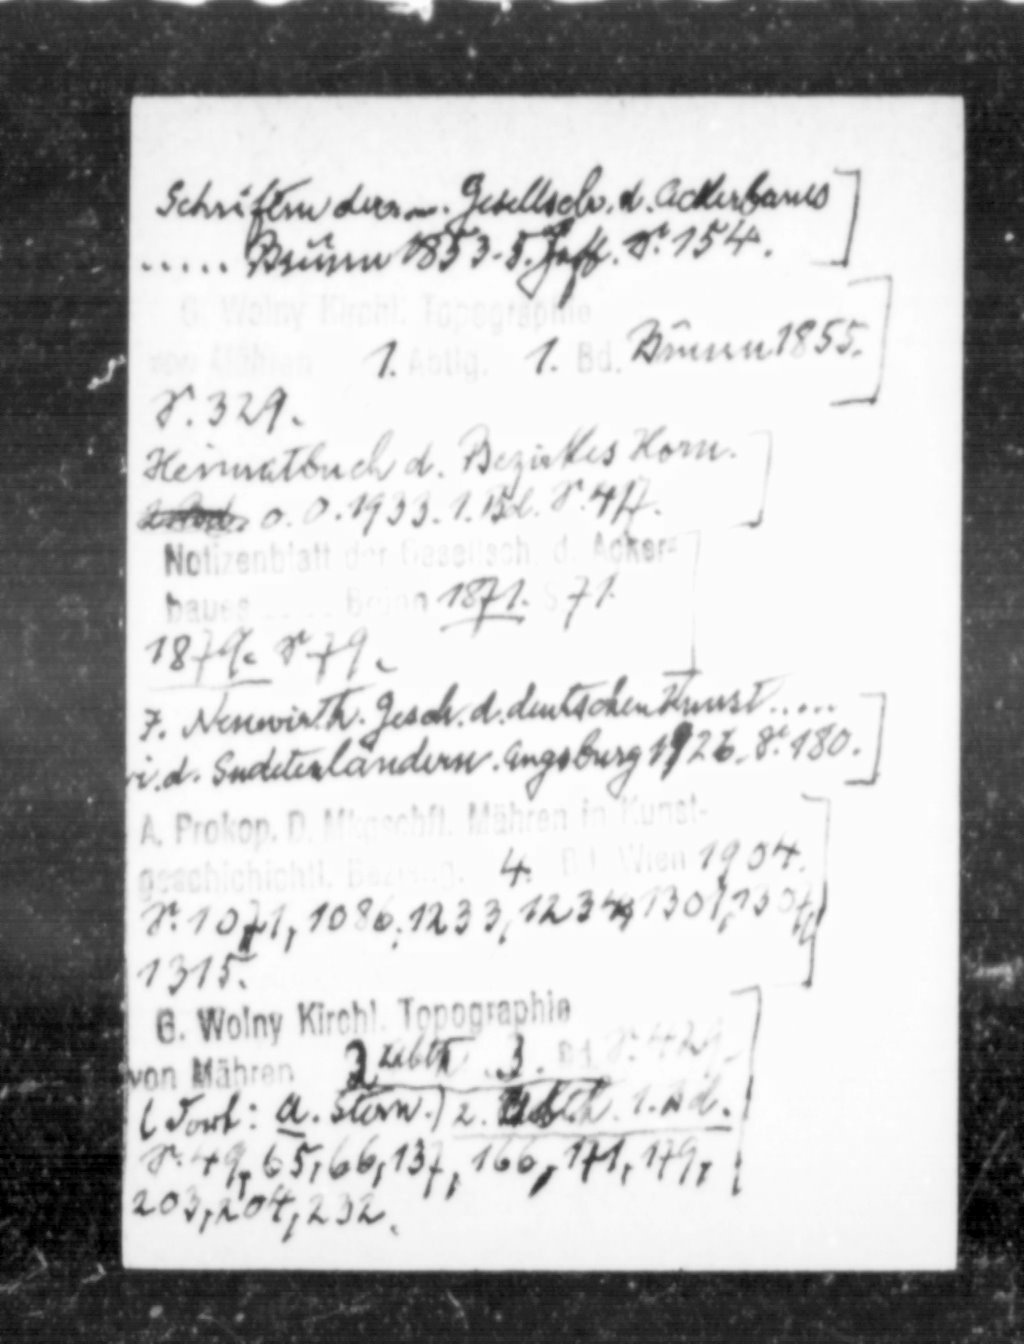 Schriften der .... Gesellsch. d. Ackerbaues
..... Brünn 1853. 5. Heft. S. 154.
G. Wolny Kirchl. Topographie
von Mähren 1. Abtlg. 1. Bd. Brünn 1855.
S. 329.
Heimatbuch d. Bezirkes Horn.
o. O. 1933. 1. Bd. S. 417.
Notizenblatt der Gesellsch. d. Acker-
baues ..... Brünn 1871. S. 71.
1879. S. 79.
J. Neuwirth. Gesch. d. deutschen Kunst.....
i. d. Sudetenländern. Augsburg 1926. S. 180.
A. Prokop. D. Mkgschft. Mähren in Kunst-
geschichtl. Beziehg. 4. Bd. Wien 1904.
S. 1071, 1086, 1233, 1234, 1301, 1307,
1315.
G. Wolny Kirchl. Topographie
von Mähren 2 Abth. 3. Bd. S. 429.
(Fort: A. Stern.) 2. Abth. 1. Bd.
S. 49, 65, 66, 137, 166, 171, 179,
203, 204, 232.